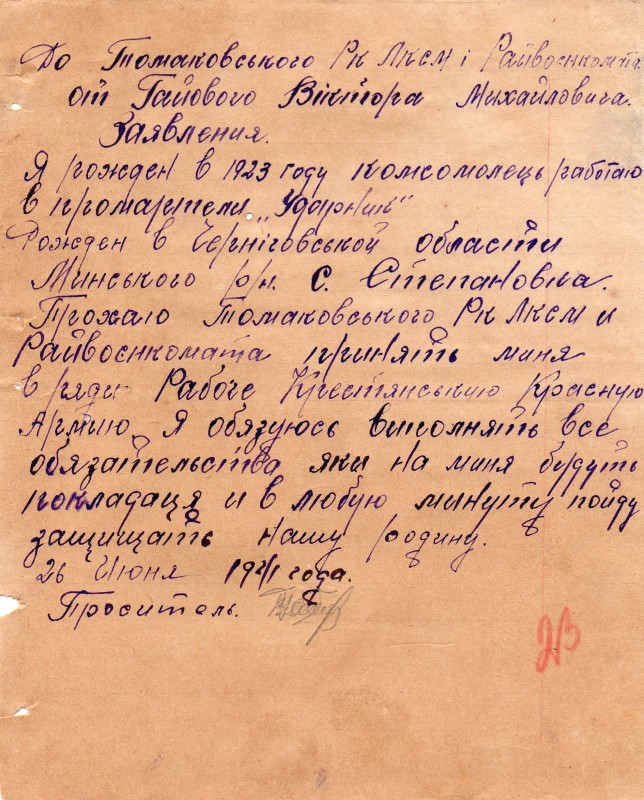 До Томаковського Рк Лксм і Райвоєнкомта
от Гайового Віктора Михайловича.
Заявления.
Я рожден в 1923 году комсомолець работаю
в промартели „Ударник“
Рожден в Чернiговськой области
Минського рн. С. Степановка.
Прохаю Томаковського Рк Лксм и
Райвоєнкомата принять миня
в ряди Рабоче Крестянськую Красную
Армию. Я обязуюсь виполнять все
обязательства яки на миня будуть
покладаця и в любую минуту пойду
защищать нашу родину.
26 Июня 1941 года.
Проситель.
23